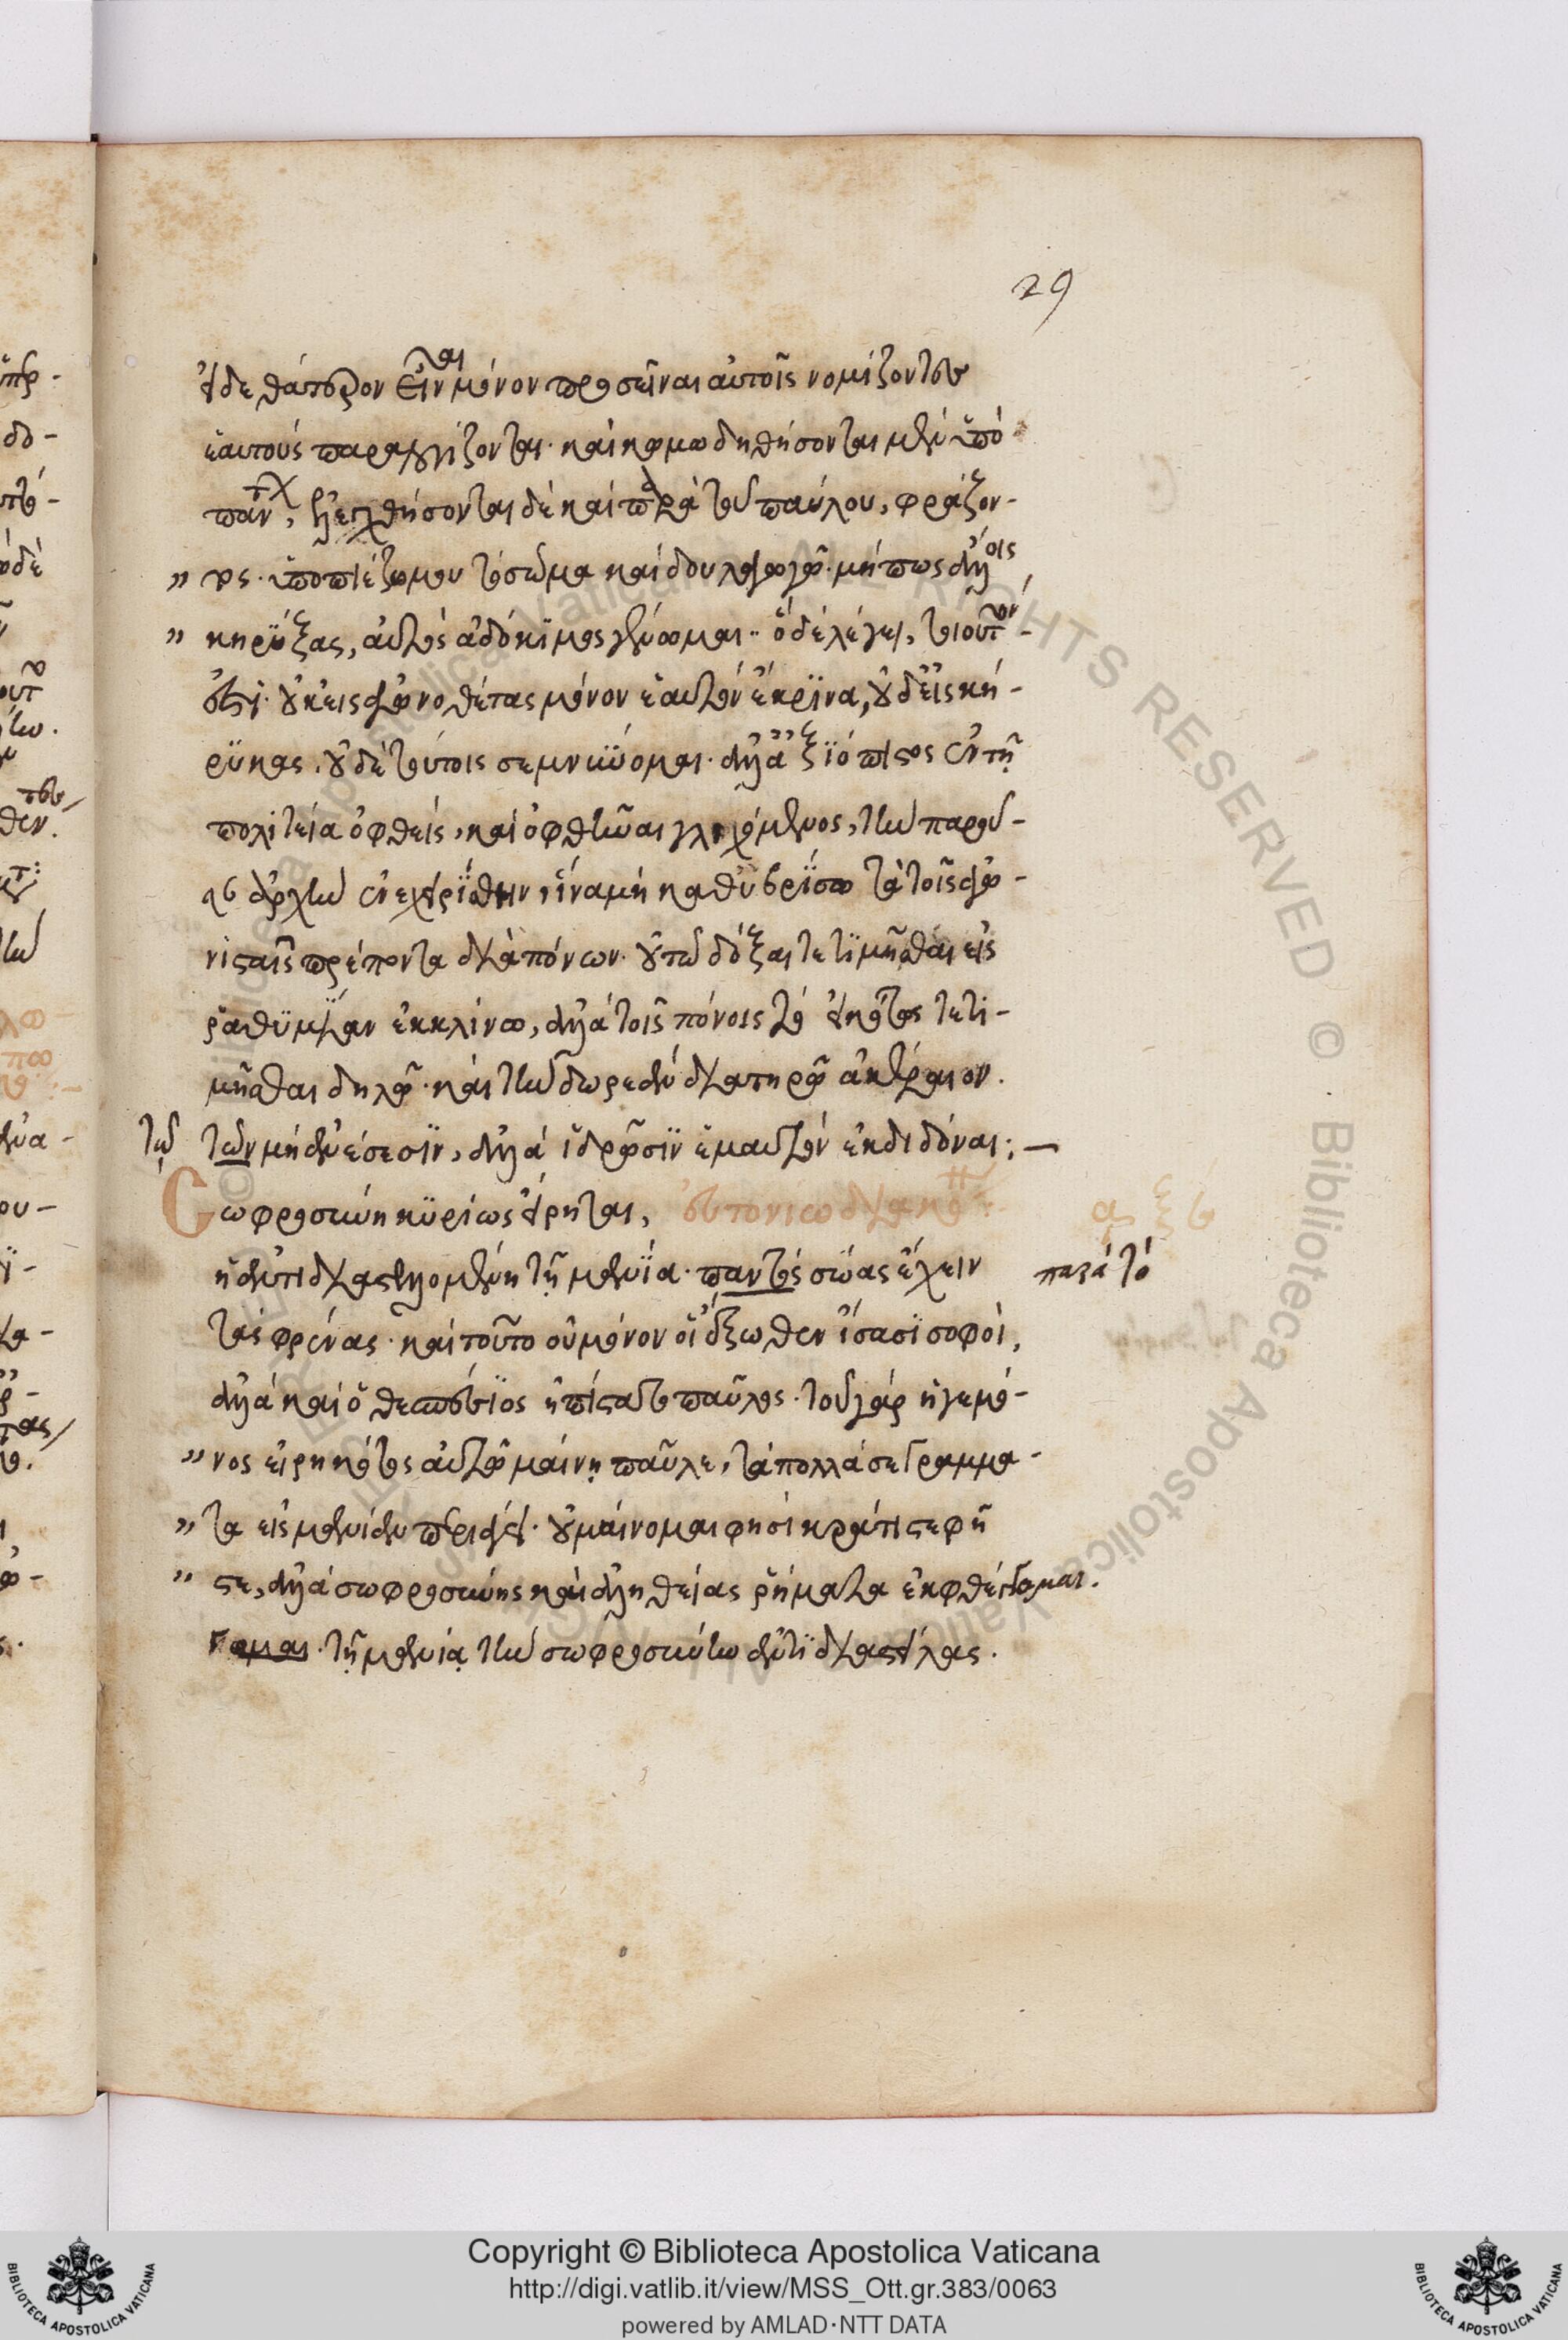 29
εἰ δὲ θάτερον εἶναι μόνον προσεῖναι αὐτοῖς νομίζοντες
ἑαυτοὺς παραλογίζονται. καὶ κωμωδηθήσονται μὲν ὑπὸ
πάντων, ἐλεγχθήσονται δὲ καὶ παρὰ τοῦ παύλου, φράζον-
” τος. ὑποπιέζω μου τὸ σῶμα καὶ δουλαγωγῶ. μήπως ἄλλοις
” κηρύξας, αὐτὸς ἀδόκιμος γένωμαι. ὃ δὲ λέγει, τοιοῦτόν
ἐστι. οὐκ εἰς ἀγωνοθέτας μόνον ἑαυτὸν ἔκρινα, οὐδ' εἰς κή-
ρυκας. οὐδὲ τούτοις σεμνύομαι. ἀλλ' ἀξιόπιστος ἐν τῇ
πολιτεία ὀφθείς, καὶ ὀφθῆναι γλιχόμενος, τὴν παροῦ-
σαν ἀρχὴν ἐνεχειρίσθην, ἵνα μὴ καθυβρίσω τὰ τοῖς ἀγω-
νισταῖς πρέποντα διὰ πόνων. οὐ τῶ δόξαι τετιμῆσθαι εἰς
ῥαθυμίαν ἐκκλίνω, ἀλλὰ τοῖς πόνοις τὸ εἰκότως τετι-
μῆσθαι δηλῶ. καὶ τὴν δωρεὰν διατηρῶ ἀκέραιον.
τῷ τῶν μὴ ἀνέσεσιν, ἀλλὰ ἱδρῶσιν ἐμαυτὸν ἐκδιδόναι:—
Σωφροσύνη κυρίως εἴρηται,
ἡ ἀντιδιαστελλομένη τῇ μανία. παντὸς σώας ἔχειν παρὰ τὸ
τὰς φρένας. καὶ τοῦτο οὐ μόνον οἱ ἔξωθεν ἴσασι σοφοί,
ἀλλὰ καὶ ὁ θεσπέσιος ἠπίστατο παῦλος. τοῦ γὰρ ἡγεμό-
” νος εἰρηκότος αὐτῶ μαίνῃ παῦλε, τὰ πολλά σε γράμμα-
” τα εἰς μανίαν περιάγει. οὐ μαίνομαι φησὶ κράτιστε φῆ
” στε, ἀλλὰ σωφροσύνης καὶ ἀληθείας ῥήματα ἐκφθέγγομαι.
γομαι. τῇ μανίᾳ τὴν σωφροσύνην ἀντιδιαστείλας.
Copyright © Biblioteca Apostolica Vaticana
http://digi.vatlib.it/view/MSS_Ott.gr.383/0063
powered by AMLAD·NTT DATA